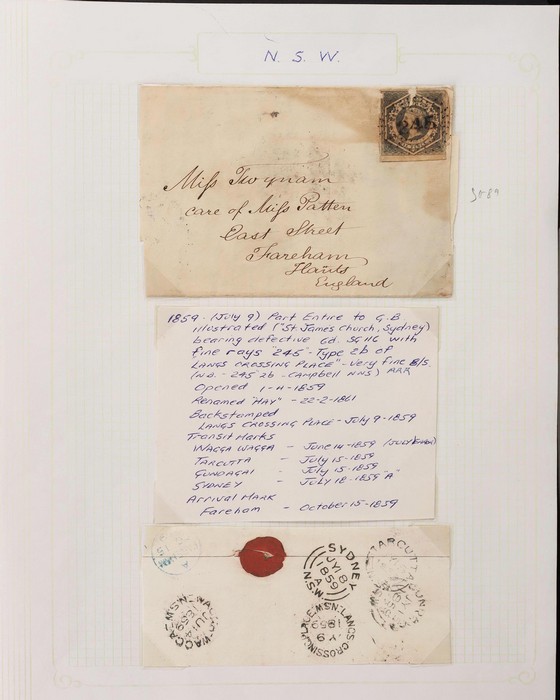 N. S. W.
245
Miss Twynam
care of Miss Patten
East Street
Fareham
Hants
England
1859 - (July 9) Part Entire to G.B
illustrated ("St James Church, Sydney)
bearing defective 6d. SG 116 with
fine rays "245" - Type 2b of
LANGS CROSSING PLACE" - Very Fine B/S.
(N.D. - 245 2b - Campbell NNS) RRR
Opened 1-11-1859
Renamed "HAY" - 22-2-1861
Backstamped
LANGS CROSSING PLACE - July 9-1859
Transit Marks
WAGGA WAGGA - June 14-1859
TARCUTTA - July 15-1859
GUNDAGAI - July 15-1859
SYDNEY - July 18-1859 "A"
Arrival MARK
Fareham - October 15-1859
SYDNEY
JY 18
1859
A
N.S.W
LANGS-CROSSING-PLACE.N.S.W
JY 9
1859
WAGGA-WAGGA N.S.W
JU 14
1859
TARCUTTA
GUNDAGAI